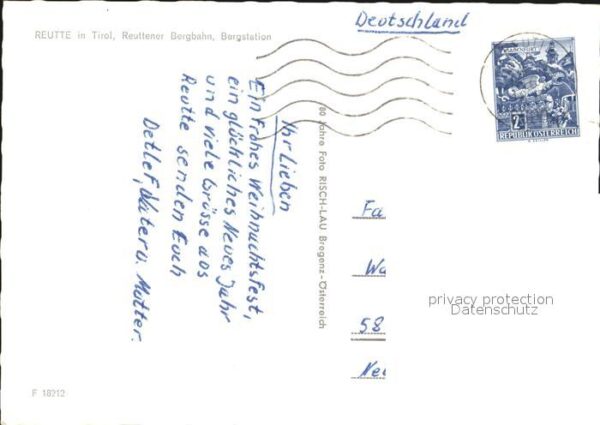 Deutschland
REUTTE in Tirol, Reuttener Bergbahn, Bergstation
REPUBLIK ÖSTERREICH
Ihr Lieben
Ein frohes Weihnachtsfest,
ein glückliches Neues Jahr
und viele Grüsse aus
Reutte senden Euch
Detlef, Vater u. Mutter.
80 Jahre Foto RISCH-LAU Bregenz-Österreich
Fa
Wa
58
Neu
privacy protection
Datenschutz
F 18212